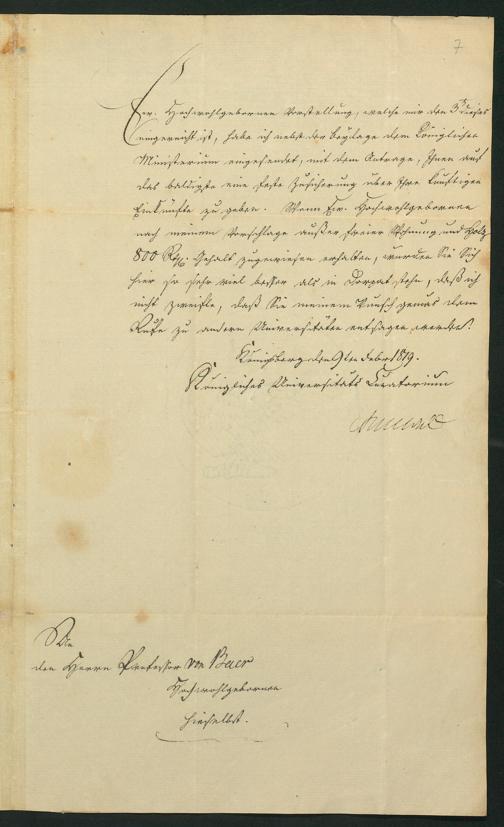 7
Ew. Hochwohlgebornen Vorstellung, welche mir den 3ten dieses
eingereicht ist, habe ich nebst der Beylage dem Königlichen
Ministerium eingesendet, mit dem Antrage, Ihnen auf
das baldigste eine feste Zusicherung über Ihre künftigen
Einkünfte zu geben. Wenn Ew. Hochwohlgebornen
nach meinem Vorschlage außer freier Wohnung und Holz
800 Rthl. Gehalt zugewiesen erhalten, würden Sie Sich
hier so sehr viel besser als in Dorpat stehn, daß ich
nicht zweifle, daß Sie meinem Wunsch gemäs dem
Rufe zu andern Universitäten entsagen werden.
Königsberg den 9ten Febr. 1819.
Königliches Universitäts Curatorium
An
den Herrn Professor von Baer
Hochwohlgebornen
hieselbst.